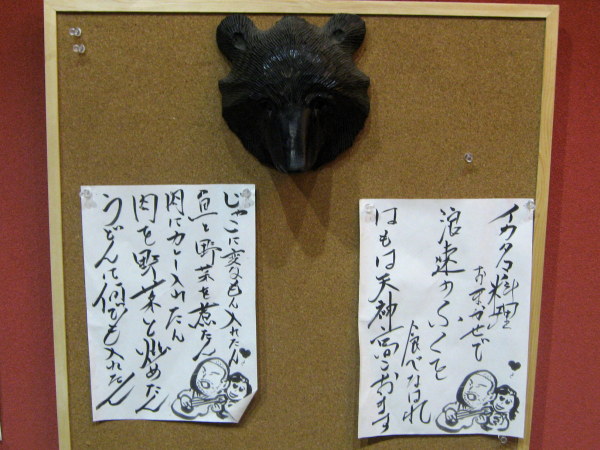 イカタコ料理
おまかせで
浪速のふくを
食べなはれ
はもは天神
おます
じゃこに変なもん入れたん
魚と野菜を煮たん
肉にカレー入れたん
肉を野菜と炒めたん
うどんに何でも入れたん